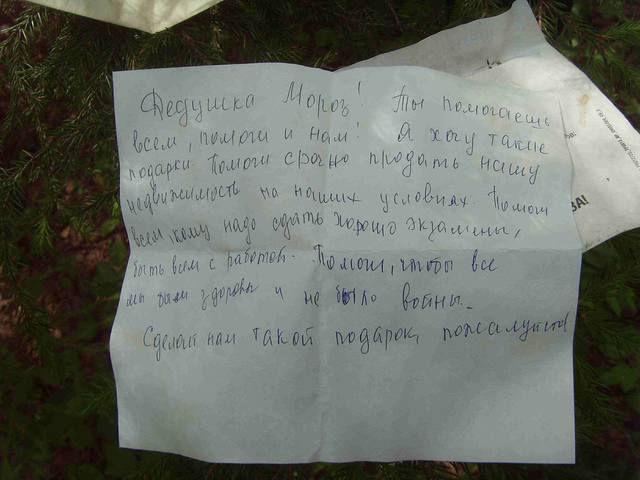 Дедушка Мороз! Ты помогаешь
всем, помоги и нам! Я хочу такие
подарки. Помоги срочно продать нашу
недвижимость на наших условиях. Помоги
всем, кому надо сдать хорошо экзамены,
быть всем с работой. Помоги, чтобы все
мы были здоровы и не было войны.
Сделай нам такой подарок, пожалуйста!
ЗА!